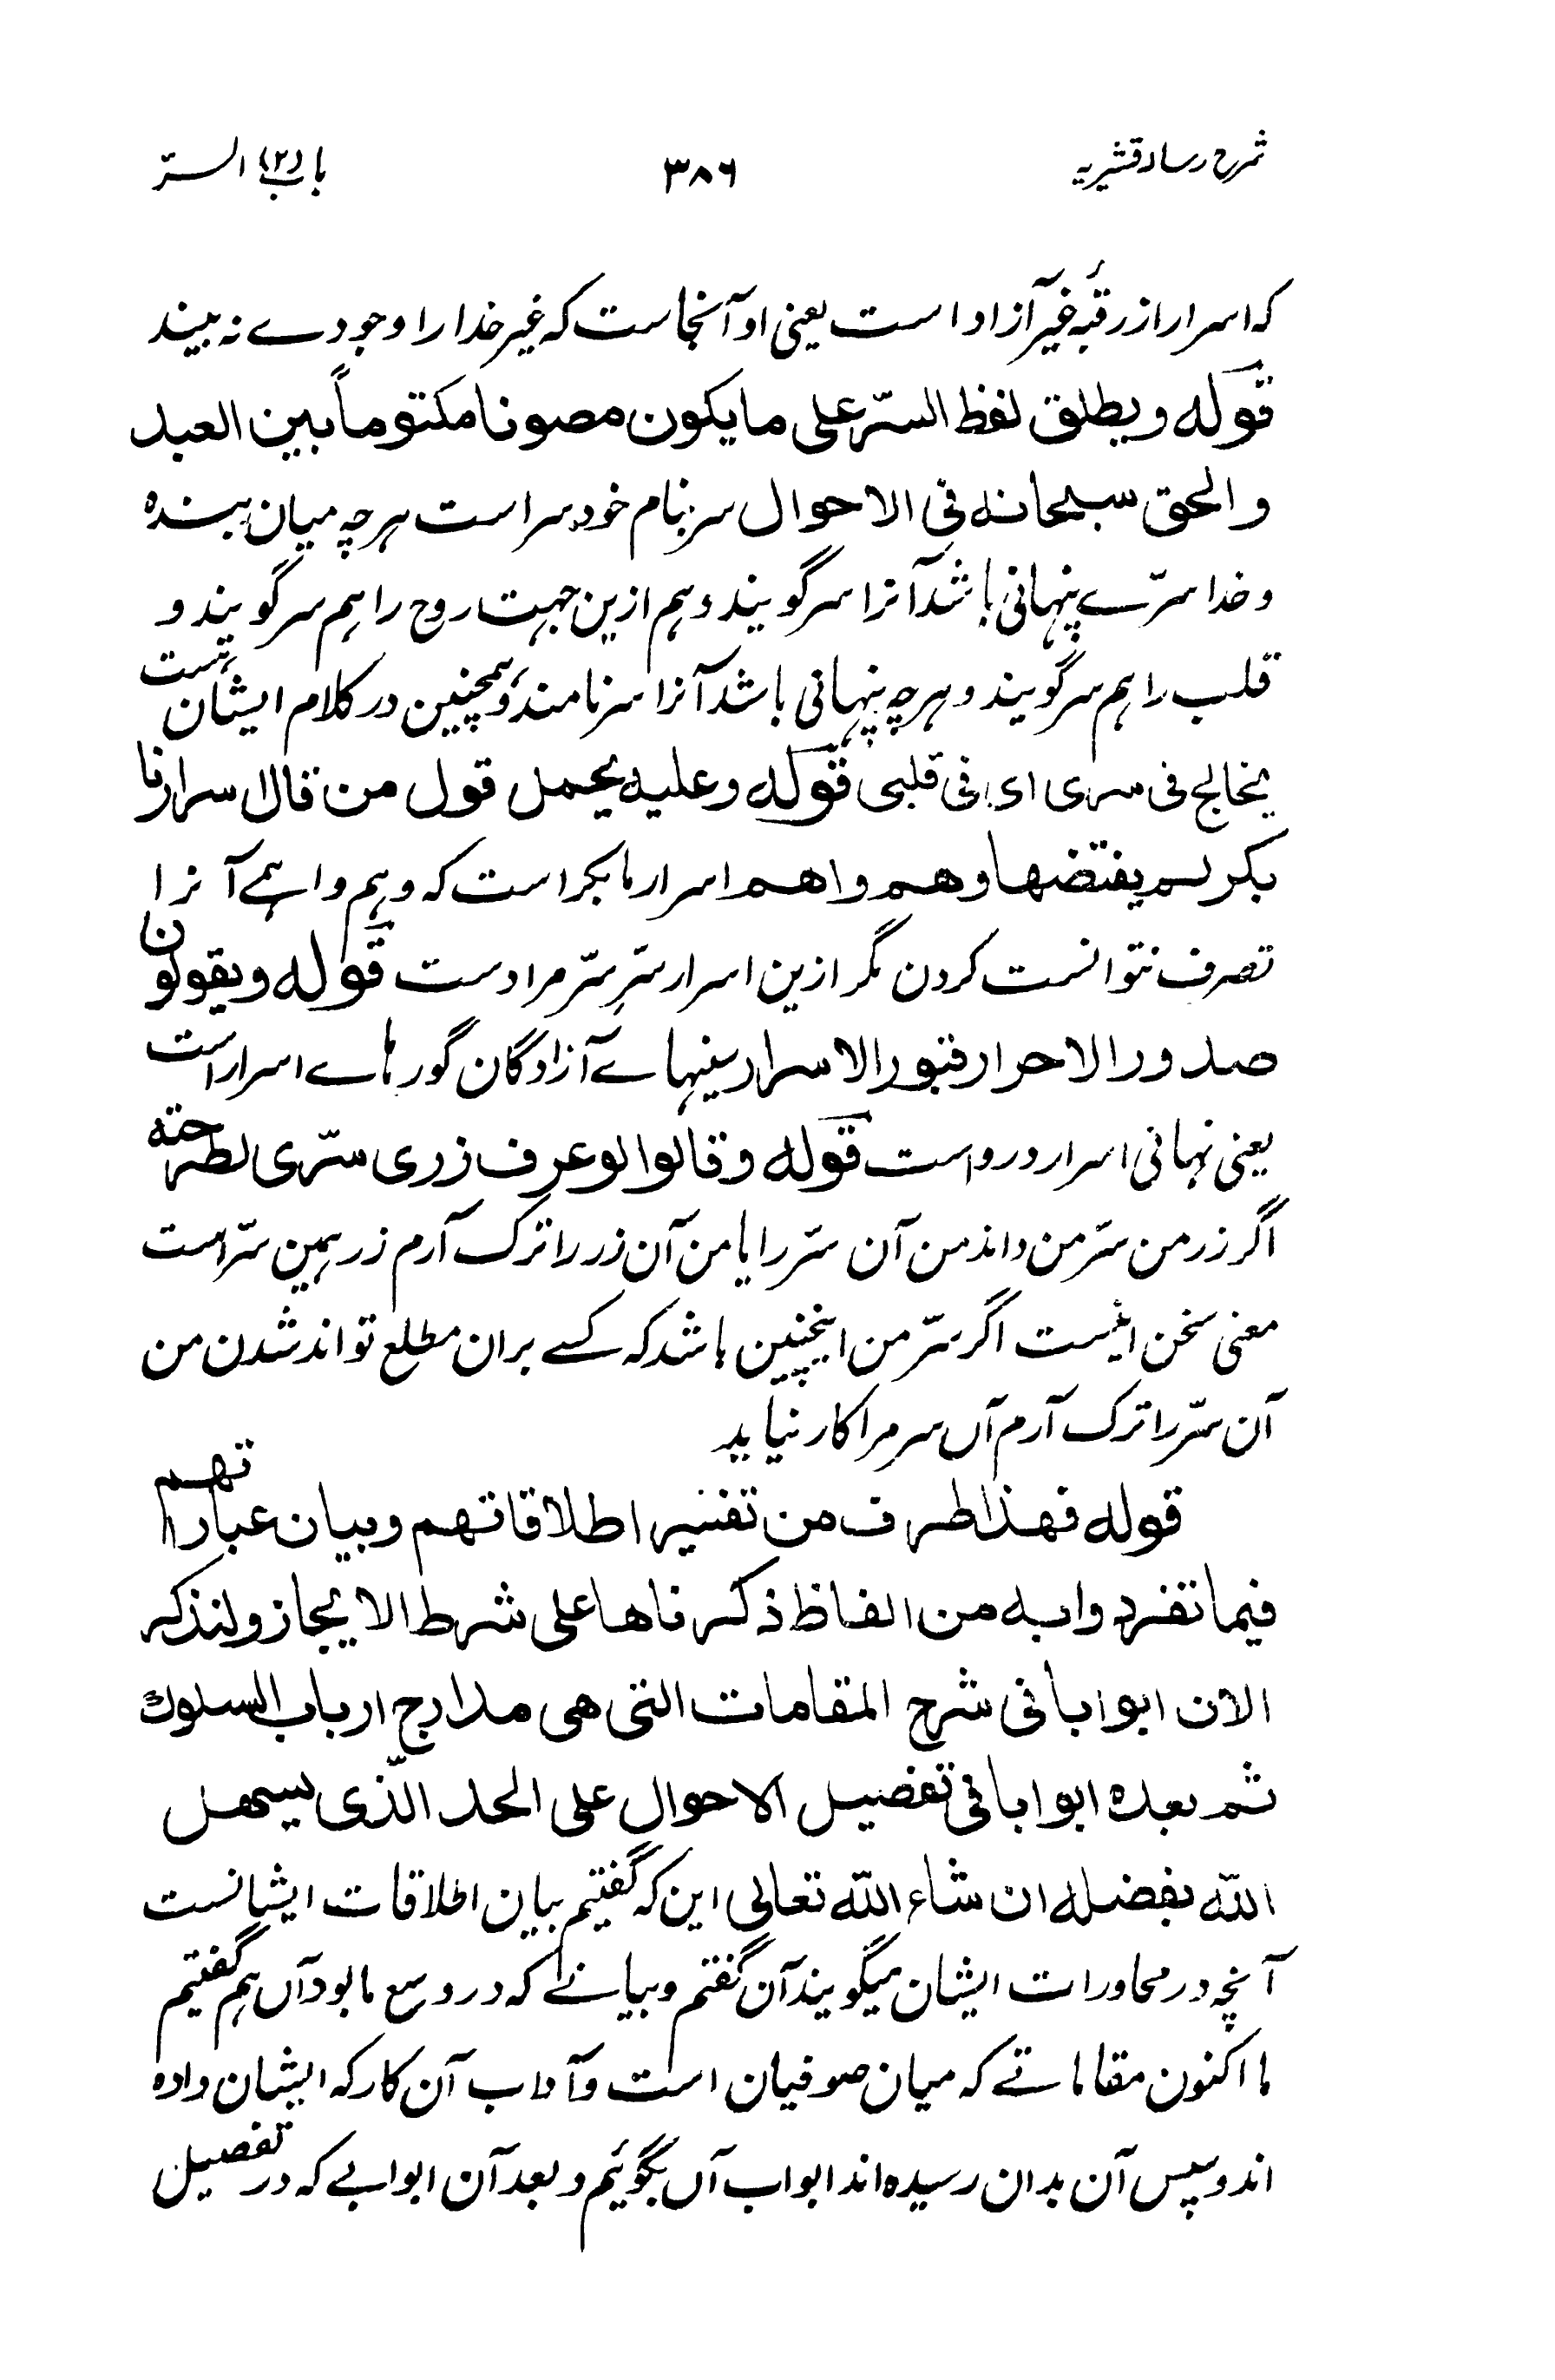 شرح رساله قشیریه ۳۸۶ باب (۲) السّر
که اسرار از رقبهٔ غیر آزاد است یعنی او آنجاست که غیر خدا را وجودے نه بیند
قوله ویطلق لفظ السّر علی ما یکون مصونا مکتوماً بین العبد
والحق سبحانه فی الاحوال سر بنام خود سر است هر چه میان بنده
و خدا سرّے پنهانی باشد آنرا سر گویند و هم ازین جهت روح را هم سر گویند و
قلب را هم سر گویند و هر چه پنهانی باشد آنرا سر نامند و همچنین در کلام ایشان هست
یخالج فی سری ای فی قلبی قوله وعلیه یحمل قول من قال اسرارنا
بکر لم یفتضها وهم واهم اسرار ما بکر است که وهم واهمے آنرا
تصرف نتوانست کردن مگر ازین اسرار سرِّ سرّ مراد ست قوله ویقولون
صدور الاحرار قبور الاسرار سینهاے آزادگان گورهاے اسرار است
یعنی نهانی اسرار در و است قوله وقالوا لو عرف زری سرّی لطرحته
اگر زر من سرّ من داند من آن سرّ را یا من آن زر را ترک آرم زر همین سرّ است
معنی سخن اینست اگر سرّ من اینچنین باشد که کسے بران مطلع تواند شدن من
آن سرّ را ترک آرم آں سر مرا کار نیاید
قوله فهذا طرف من تفسیر اطلاقاتهم وبیان عباراتهم
فیما تفردوا به من الفاظ ذکرناها علی شرط الایجاز ولنذکر
الان ابوابا فی شرح المقامات التی هی مدارج ارباب السلوک
ثم بعده ابوابا فی تفصیل الاحوال علی الحد الّذی یسهل
الله بفضله ان شاء الله تعالی این که گفتیم بیان اطلاقات ایشانست
آنچه در محاورات ایشان میگویند آن گفتم و بیانے که در وسع ما بود آں هم گفتیم
ما اکنون مقاماتے که میان صوفیان است و آداب آن کار که ایشان داده
اند و سپس آن بدان رسیده اند ابواب آں بگوئیم و بعد آن ابوابے که در تفصیل